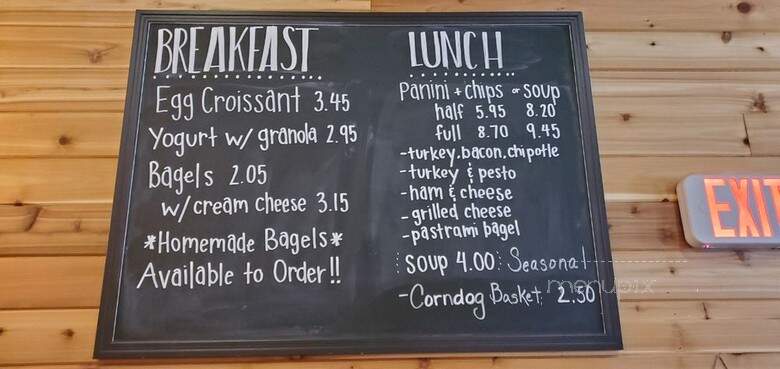 BREAKFAST
Egg Croissant 3.45
Yogurt w/ granola 2.95
Bagels 2.05
w/cream cheese 3.15
*Homemade Bagels*
Available to Order!!
LUNCH
Panini + chips or soup
half 5.95 8.20
full 8.70 9.45
-turkey, bacon, chipotle
-turkey & pesto
-ham & cheese
-grilled cheese
-pastrami bagel
soup 4.00: Seasonal
-Corndog Basket: 2.50
menupix
EXIT